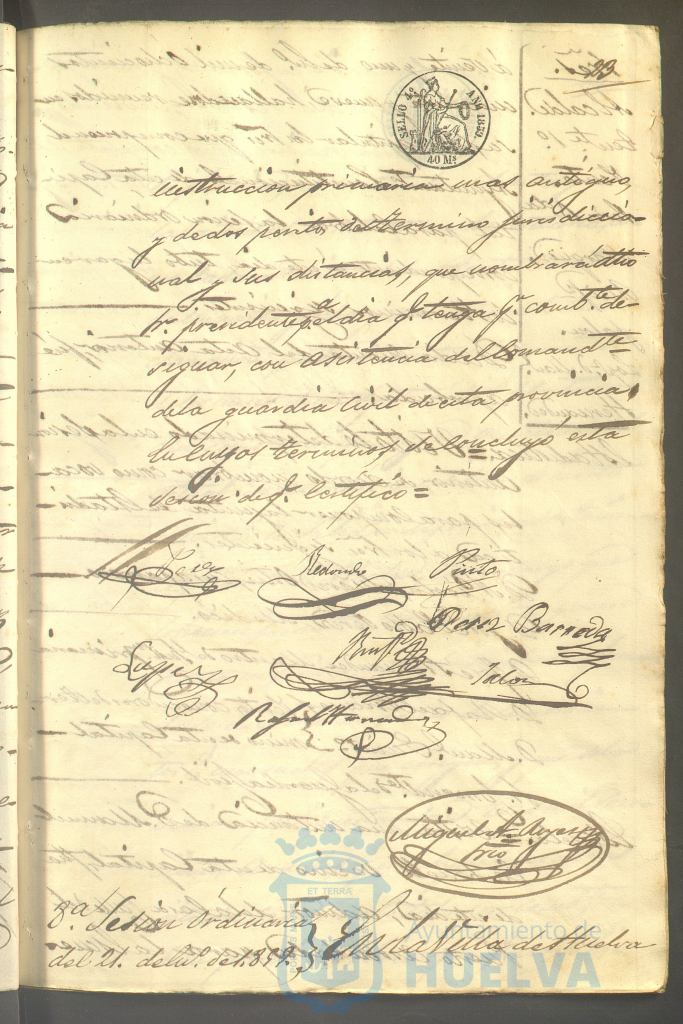 23
SELLO 4º AÑO 1859
40 Ms
instruccion primaria mas antiguo,
y de dos perito del termino jurisdiccio-
nal y sus distancias, que nombrará dho
Sr. presidente pa el dia q. tenga pr. combte. de-
signar, con asistencia del Comandte=
de la guardia civil de esta provincia.
En cuyos terminos se concluyó esta
sesion de q. Certifico=
Redondo Pinto
Perez Barroda
Lopez
Rafael
Miguel
ET TERRÆ
8ª Sesion Ordinaria
del 21. de
En la Villa de Huelva
Ayuntamiento de
HUELVA